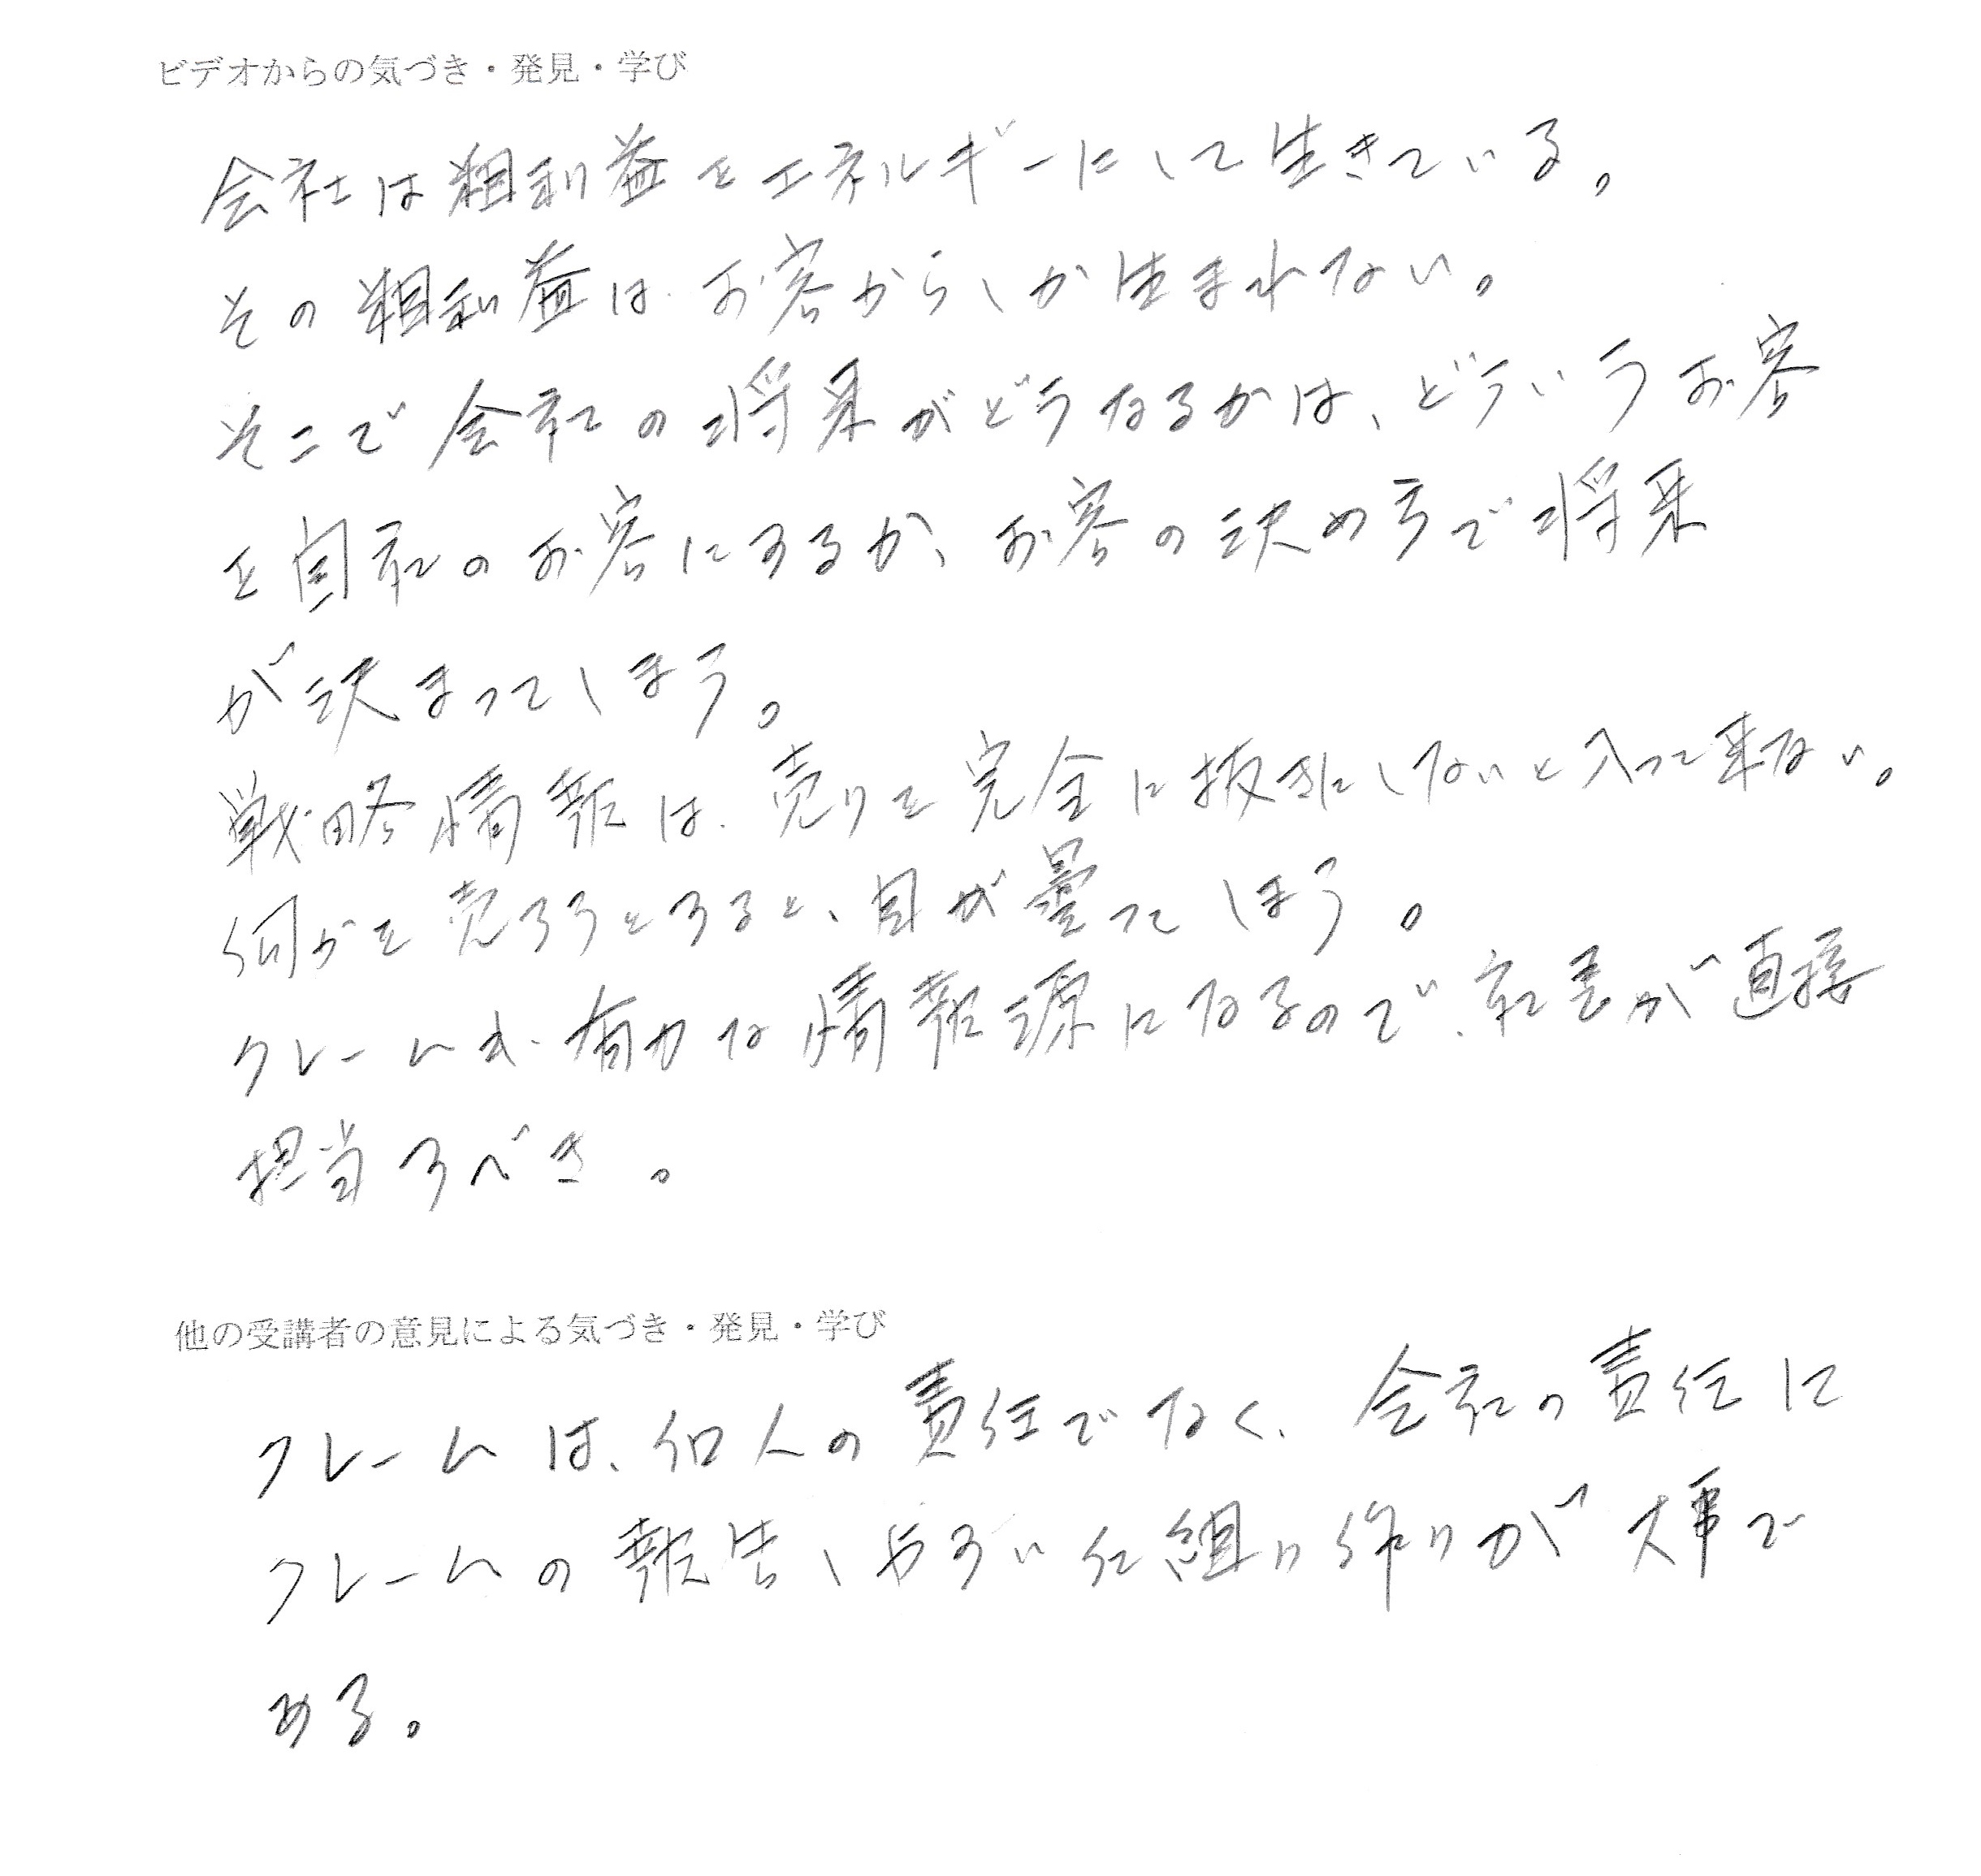 ビデオからの気づき・発見・学び
会社は粗利益をエネルギーにして生きている。
その粗利益は、お客からしか生まれない。
そこで会社の将来がどうなるかは、どういうお客
を自社のお客にするか、お客の決め方で将来
が決まってしまう。
戦略情報は、売りを完全に抜きにしないと入って来ない。
何かを売ろうとすると、目が曇ってしまう。
クレームも、有力な情報源になるので、社長が直接
担当すべき。
他の受講者の意見による気づき・発見・学び
クレームは、個人の責任でなく、会社の責任に
クレームの報告しやすい仕組み作りが大事で
ある。